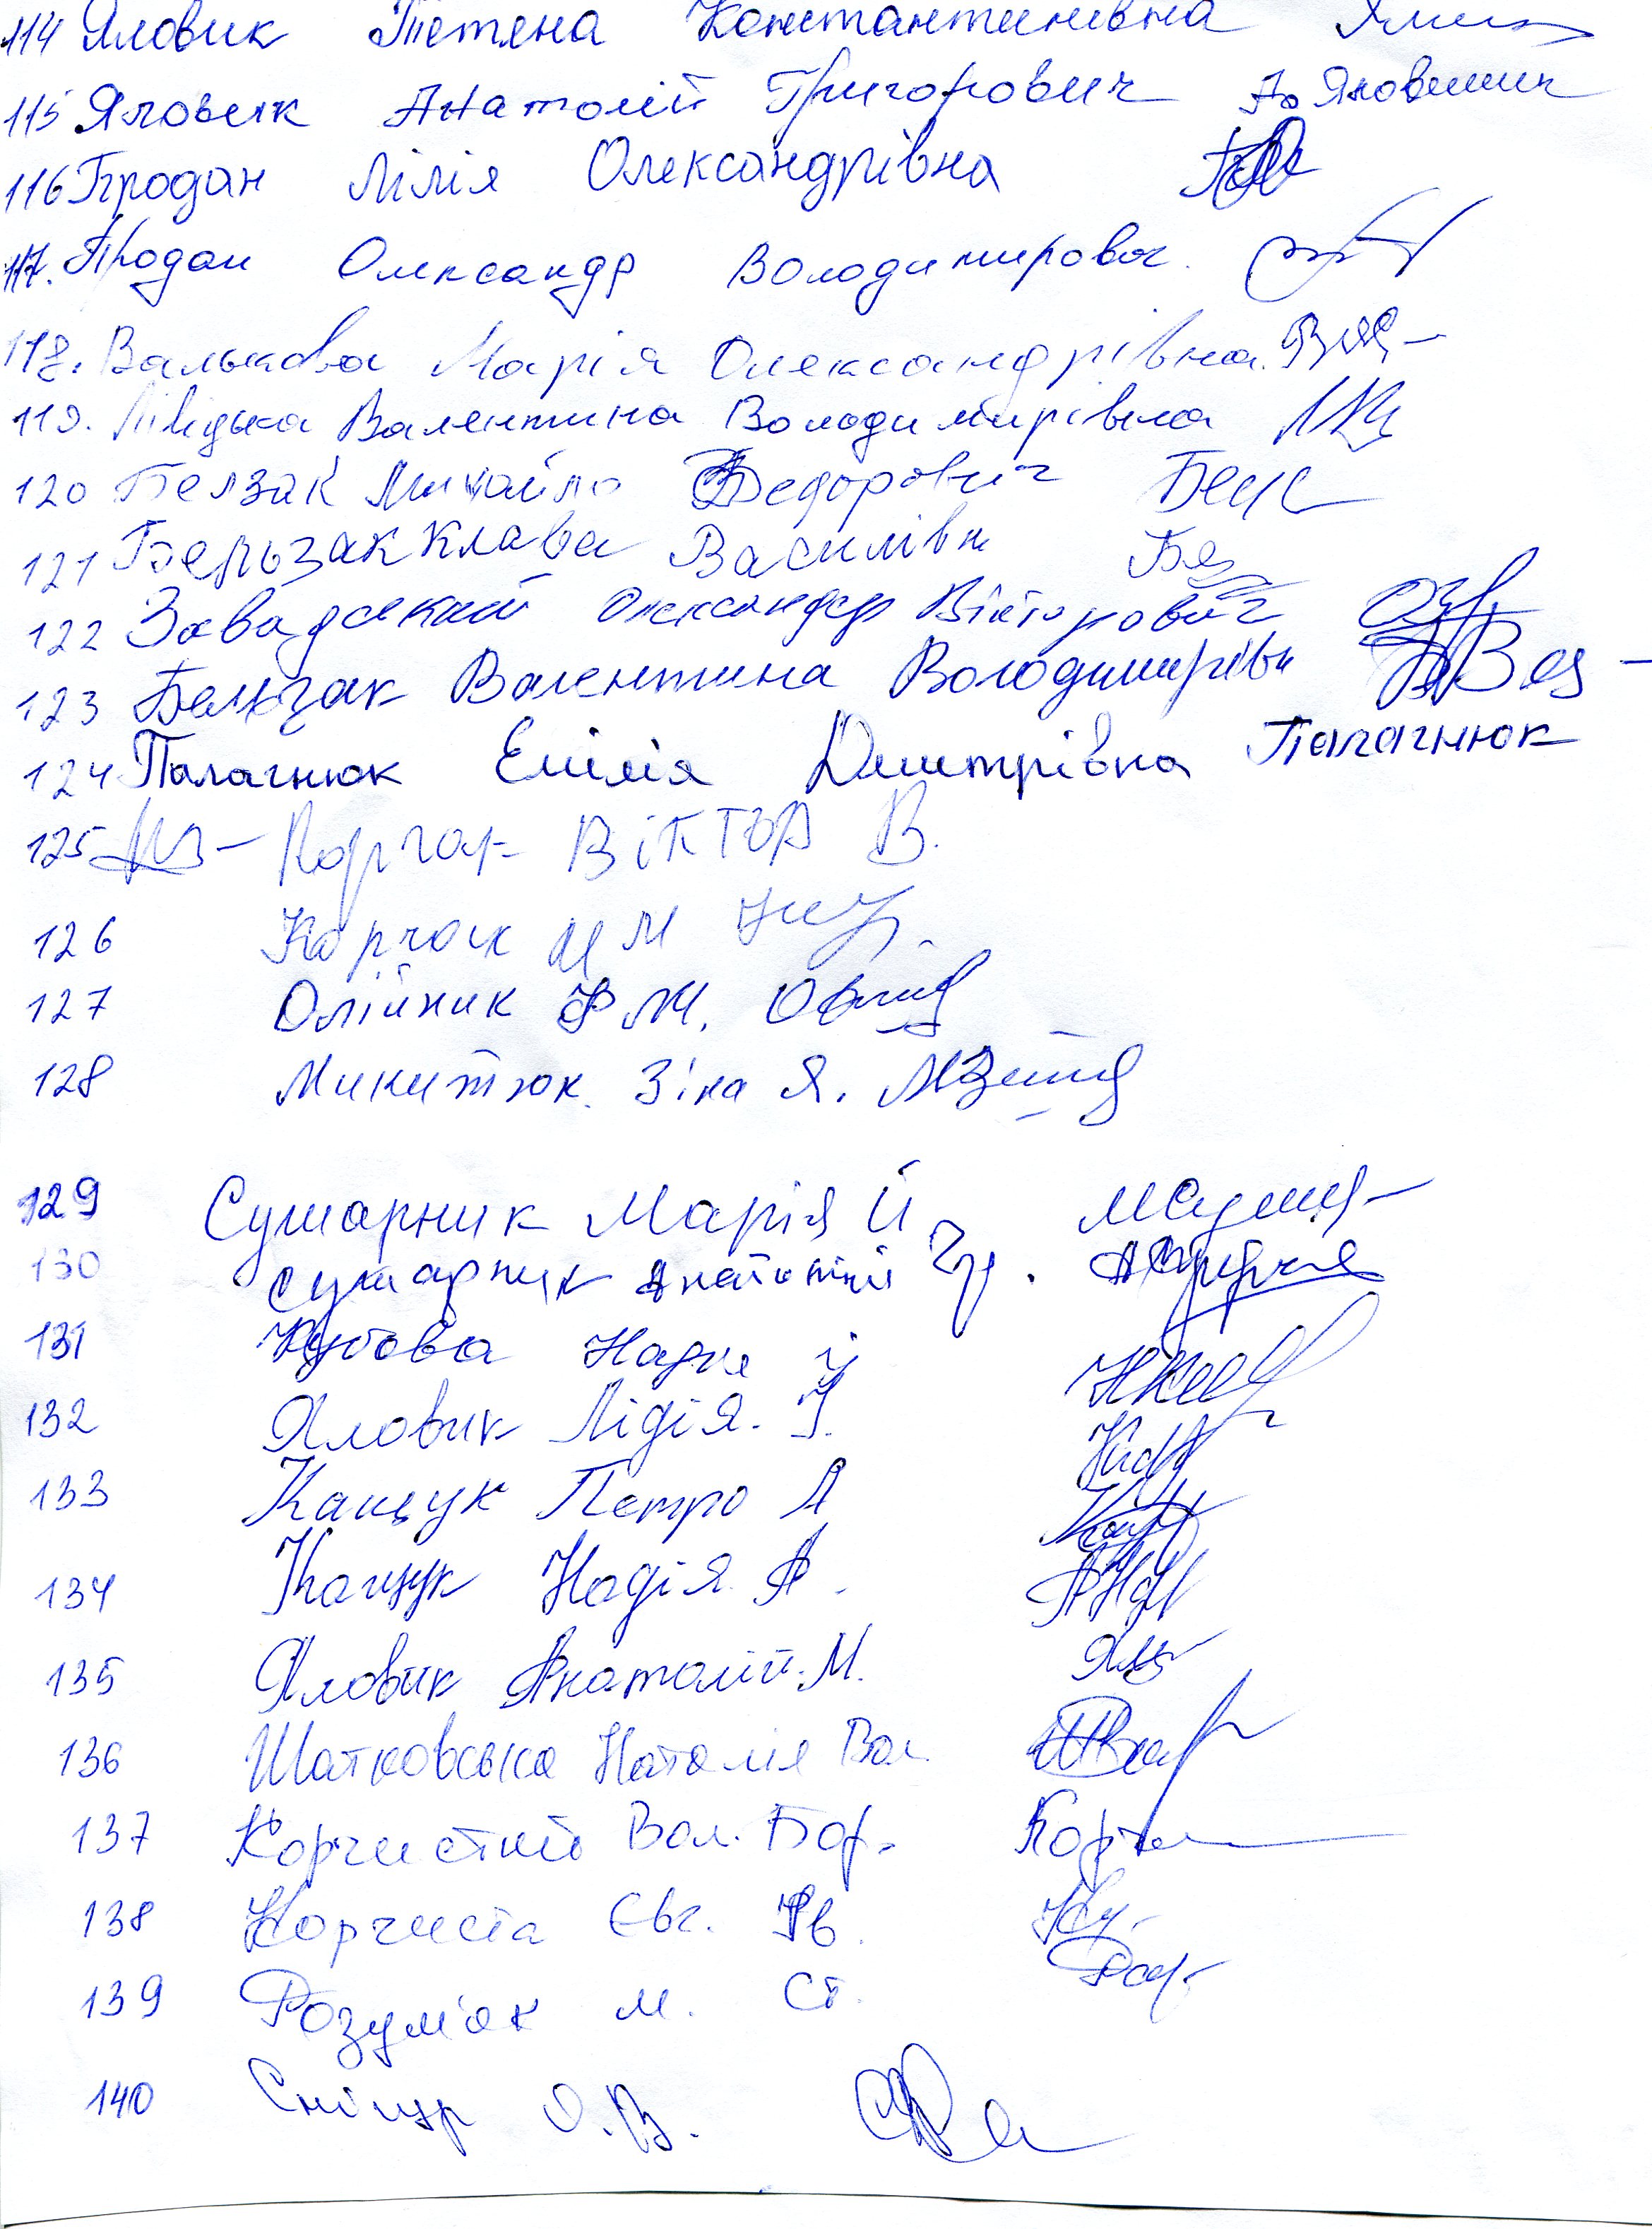 114 Яловик Тетяна Константинівна
115 Яловик Анатолій Григорович
116 Продан Лілія Олександрівна
117. Продан Олександр Володимирович
118. Валькова Марія Олександрівна.
119. Валентина Володимирівна
120 Белзак Михайло Федорович
121 Бельзак Клава Василівн
122 Завадский Олександр Вікторович
123 Бельзак Валентина Володимирівн
124 Палагнюк Емілія Дмитрівна Палагнюк
125 Корчак Віктор В.
126 Корчак М
127 Олійник Ф М.
128 Микитюк. Зіна Я.
129 Сушарник Марія Й
130 Сушарник Анатолій
131 Надія Й
132 Яловик Лідія. І.
133 Кащук Петро А
134 Кащук Надія А.
135 Яловик Анатолій. М.
136 Шатковська Наталія Вол.
137 Корчистий Вол. Бор.
138 Корчиста Євг.
139 Розумяк М. Ст.
140 Снігур О.В.